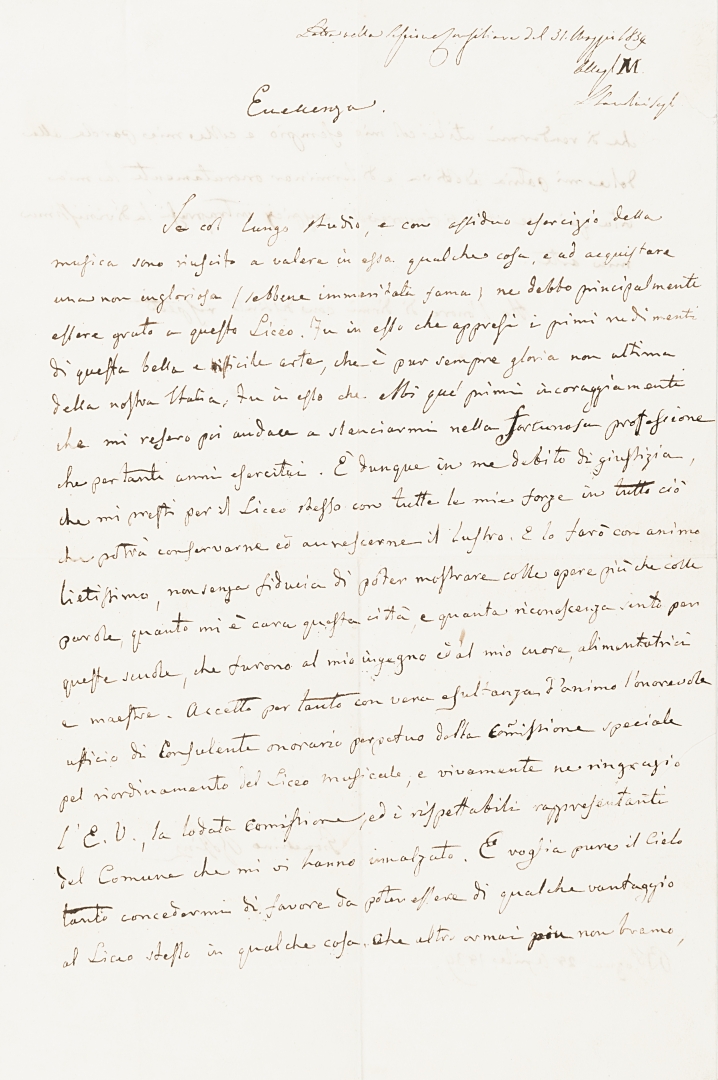 Letta nella Sessione Consigliare del 31. Maggio 1839
Alleg. M.
Eccellenza.
Se col lungo studio, e con assiduo esercizio della
musica sono riuscito a valere in essa qualche cosa, e ad acquistare
una non ingloriosa (sebbene immeritata fama) ne debbo principalmente
essere grato a questo Liceo. Fu in esso che appresi i primi rudimenti
di questa bella e difficile arte, che è pur sempre gloria non ultima
della nostra Italia; fu in esso che ebbi que' primi incoraggiamenti
che mi resero poi audace a slanciarmi nella fortunosa professione
che per tanti anni esercitai. È dunque in me debito di giustizia,
che mi presti per il Liceo stesso con tutte le mie forze in tutto ciò
che potrà conservarne ed accrescerne il lustro. E lo farò con animo
lietissimo, non senza fiducia di poter mostrare colle opere più che colle
parole, quanto mi è cara questa città, e quanta riconoscenza sento per
queste scuole, che furono al mio ingegno ed al mio cuore, alimentatrici
e maestre. Accetto per tanto con vera esultanza d'animo l'onorevole
ufficio di Consulente onorario perpetuo della Comissione speciale
pel riordinamento del Liceo musicale, e vivamente ne ringrazio
l'E. V., la lodata Comissione, ed i rispettabili rappresentanti
del Comune che mi vi hanno innalzato. E voglia pure il Cielo
tanto concedermi di favore da poter essere di qualche vantaggio
al Liceo stesso in qualche cosa, che altro ormai più non bramo,